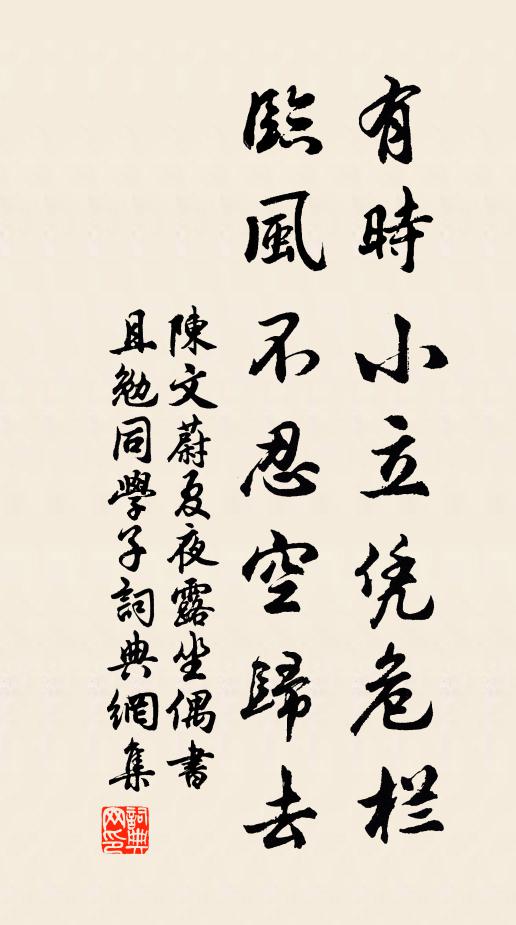 有時小立凭危栏
臨風不忍空歸去
陳文蔚夏夜露坐偶書
且勉同學子詞典網集
詞典
网印